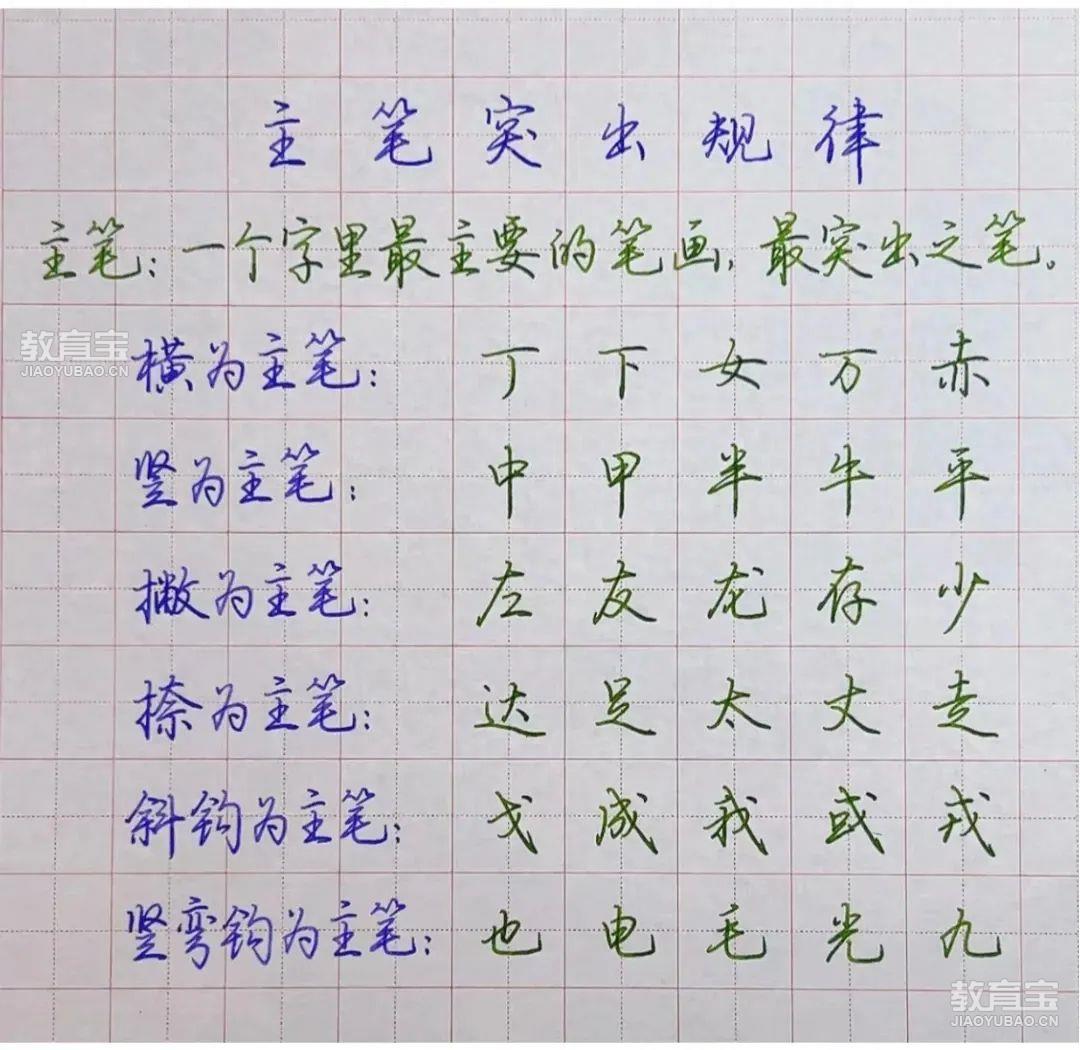 主笔突出规律
主笔：一个字里最主要的笔画，最突出之笔。
教育宝
JIAOYUBAO.CN
横为主笔：丁 下 女 万 赤
竖为主笔：中 甲 半 牛 平
撇为主笔：左 友 龙 存 少
捺为主笔：达 足 太 丈 走
斜钩为主笔：戈 成 我 或 戎
竖弯钩为主笔：也 电 毛 光 九
教育宝
JIAOYUBAO.CN